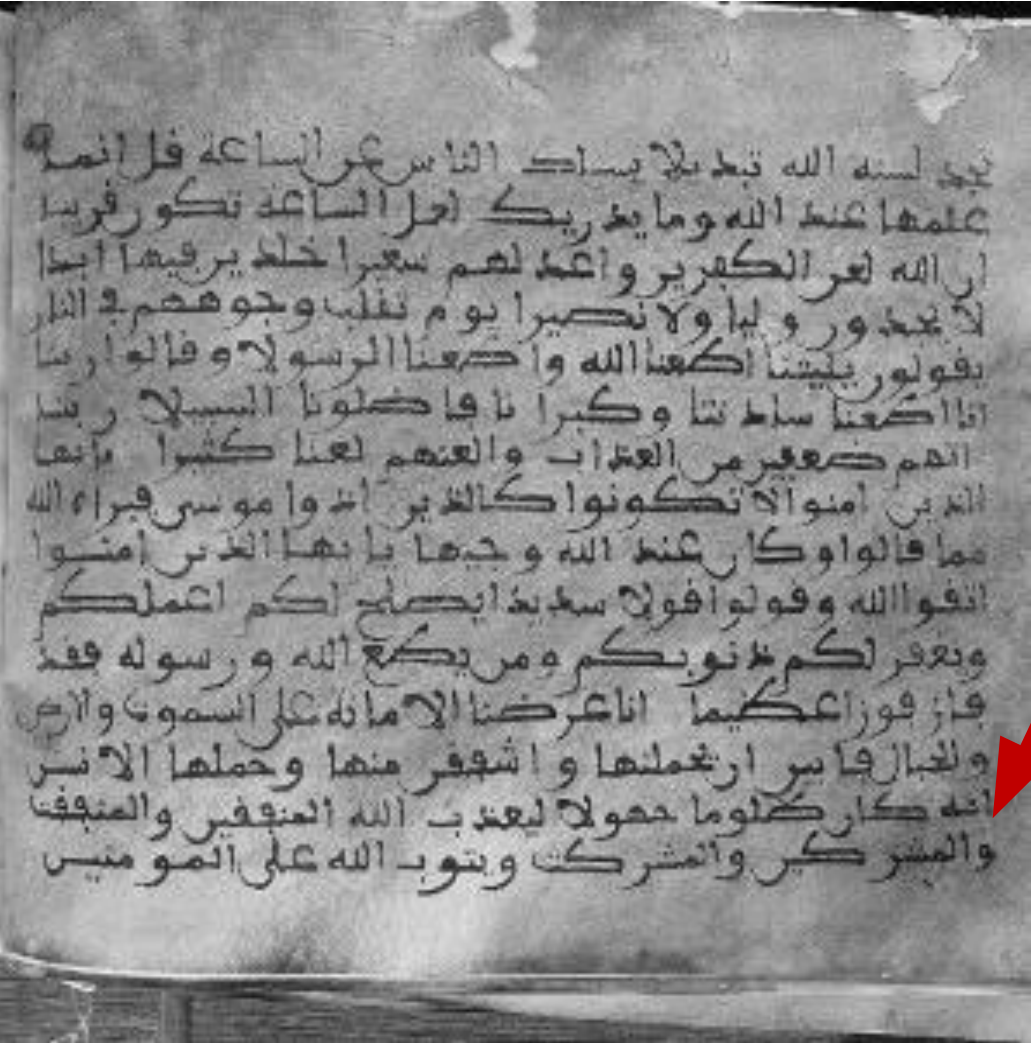 تجد لسنه الله تبديلا يسلك الناس عن الساعة قل انما
علمها عند الله وما يدريك لعل الساعة تكون قريبا
ان الله لعن الكفرين واعد لهم سعيرا خلدين فيها ابدا
لا يجدون وليا ولا نصيرا يوم تقلب وجوههم في النار
يقولون يليتنا اطعنا الله واطعنا الرسولا وقالوا ربنا
انا اطعنا سادتنا وكبرانا فاضلونا السبيلا ربنا
اتهم ضعفين من العذاب والعنهم لعنا كثيرا يايها
الذين امنوا لا تكونوا كالذين اذوا موسى فبراه الله
مما قالوا وكان عند الله وجيها يايها الذين امنوا
اتقوا الله وقولوا قولا سديدا يصلح لكم اعملكم
ويغفر لكم ذنوبكم ومن يطع الله ورسوله فقد
فاز فوزا عظيما انا عرضنا الامانة على السموت والارض
والجبال فابين ان يحملنها واشفقن منها وحملها الانسن
انه كان ظلوما جهولا ليعذب الله المنفقين والمنفقت
والمشركين والمشركت ويتوب الله على المومنين